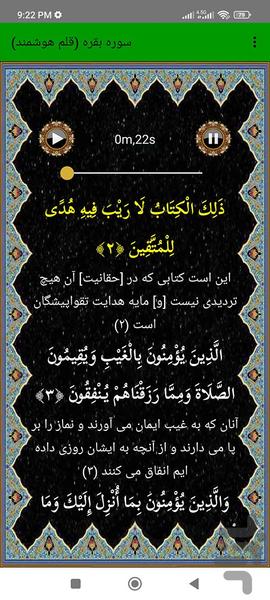 9:22 PM
سوره بقره (قلم هوشمند)
0m,22s
ذَلِكَ الْكِتَابُ لَا رَيْبَ فِيهِ هُدًى
لِلْمُتَّقِينَ ﴿٢﴾
این است کتابی که در [حقانیت] آن هیچ
تردیدی نیست [و] مایه هدایت تقواپیشگان
است (۲)
الَّذِينَ يُؤْمِنُونَ بِالْغَيْبِ وَيُقِيمُونَ
الصَّلَاةَ وَمِمَّا رَزَقْنَاهُمْ يُنْفِقُونَ ﴿٣﴾
آنان که به غیب ایمان می آورند و نماز را بر
پا می دارند و از آنچه به ایشان روزی داده
ایم انفاق می کنند (۳)
وَالَّذِينَ يُؤْمِنُونَ بِمَا أُنْزِلَ إِلَيْكَ وَمَا